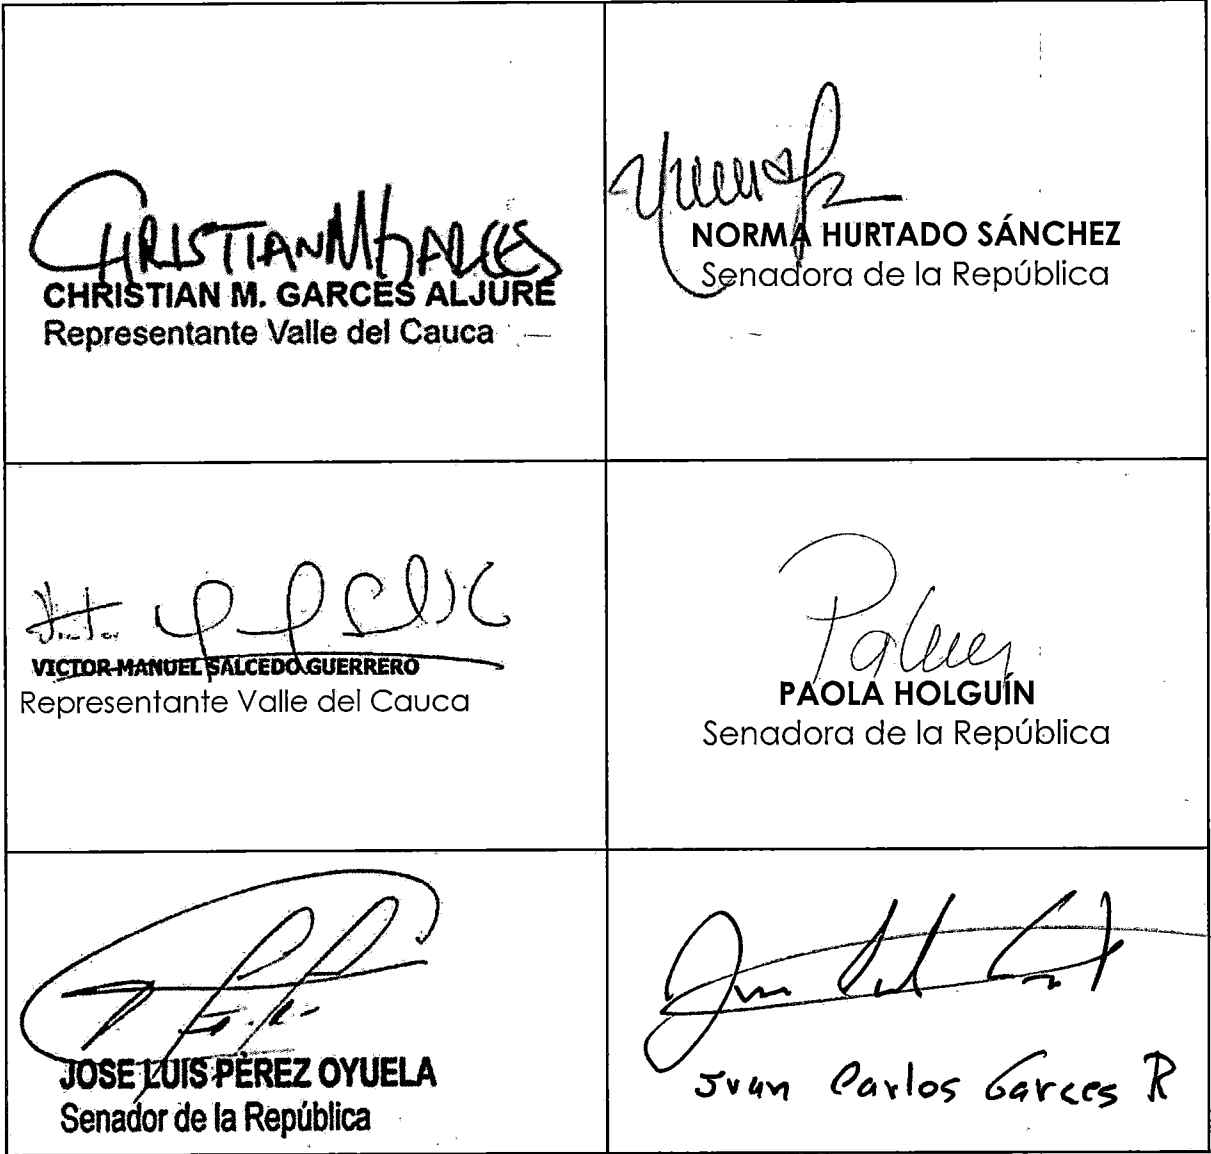 CHRISTIAN M GARCES
CHRISTIAN M. GARCES ALJURE
Representante Valle del Cauca
NORMA HURTADO SÁNCHEZ
Senadora de la República
VICTOR MANUEL SALCEDO GUERRERO
Representante Valle del Cauca
PAOLA HOLGUÍN
Senadora de la República
JOSE LUIS PÉREZ OYUELA
Senador de la República
Juan Carlos Garces R